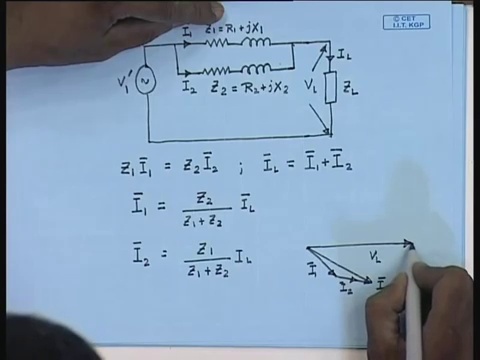 © CET
I.I.T. KGP
I₁ Z₁ = R₁ + jX₁
I_L
V₁' ~
I₂ Z₂ = R₂ + jX₂
V_L Z_L
Z₁ Ī₁ = Z₂ Ī₂ ; Ī_L = Ī₁ + Ī₂
Ī₁ = Z₂ / (Z₁ + Z₂) Ī_L
Ī₂ = Z₁ / (Z₁ + Z₂) I_L
V_L
Ī₁ Ī₂ Ī